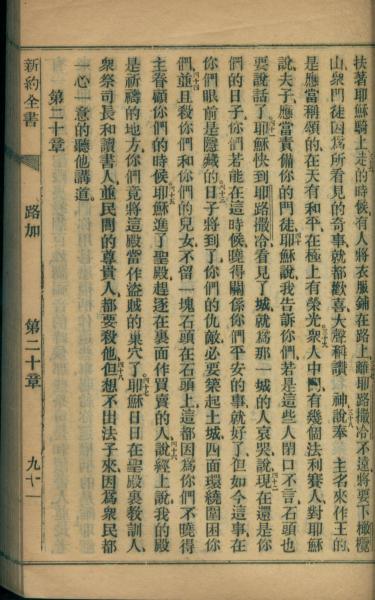 扶著耶穌騎上走的時候有人將衣服鋪在路上離耶路撒冷不遠將要下橄欖
山衆門徒因爲所看見的奇事就都歡喜大聲稱讚 神說奉 主名來作王的
是應當稱頌的在天有和平在極上有榮光衆人中間有幾個法利賽人對耶穌
說夫子應當責備你的門徒耶穌說我告訴你們若是這些人閉口不言石頭也
要說話了耶穌快到耶路撒冷看見了城就爲那一城的人哀哭說現在還是你
們的日子你們若能在這時候曉得關係你們平安的事就好了但如今這事在
你們眼前是隱藏的日子將到了你們的仇敵必要築起土城四面環繞圍困你
們並且殺你們和你們的兒女不留一塊石頭在石頭上這都因爲你們不曉得
主眷顧你們的時候耶穌進了聖殿趕逐在裏面作買賣的人說經上說我的殿
是祈禱的地方你們竟將這殿當作盜賊的巢穴了耶穌日日在聖殿裏教訓人
衆祭司長和讀書人並民間的尊貴人都要殺他但想不出法子來因爲衆民都
一心一意的聽他講道
第二十章
新約全書 路加 第二十章 九十一